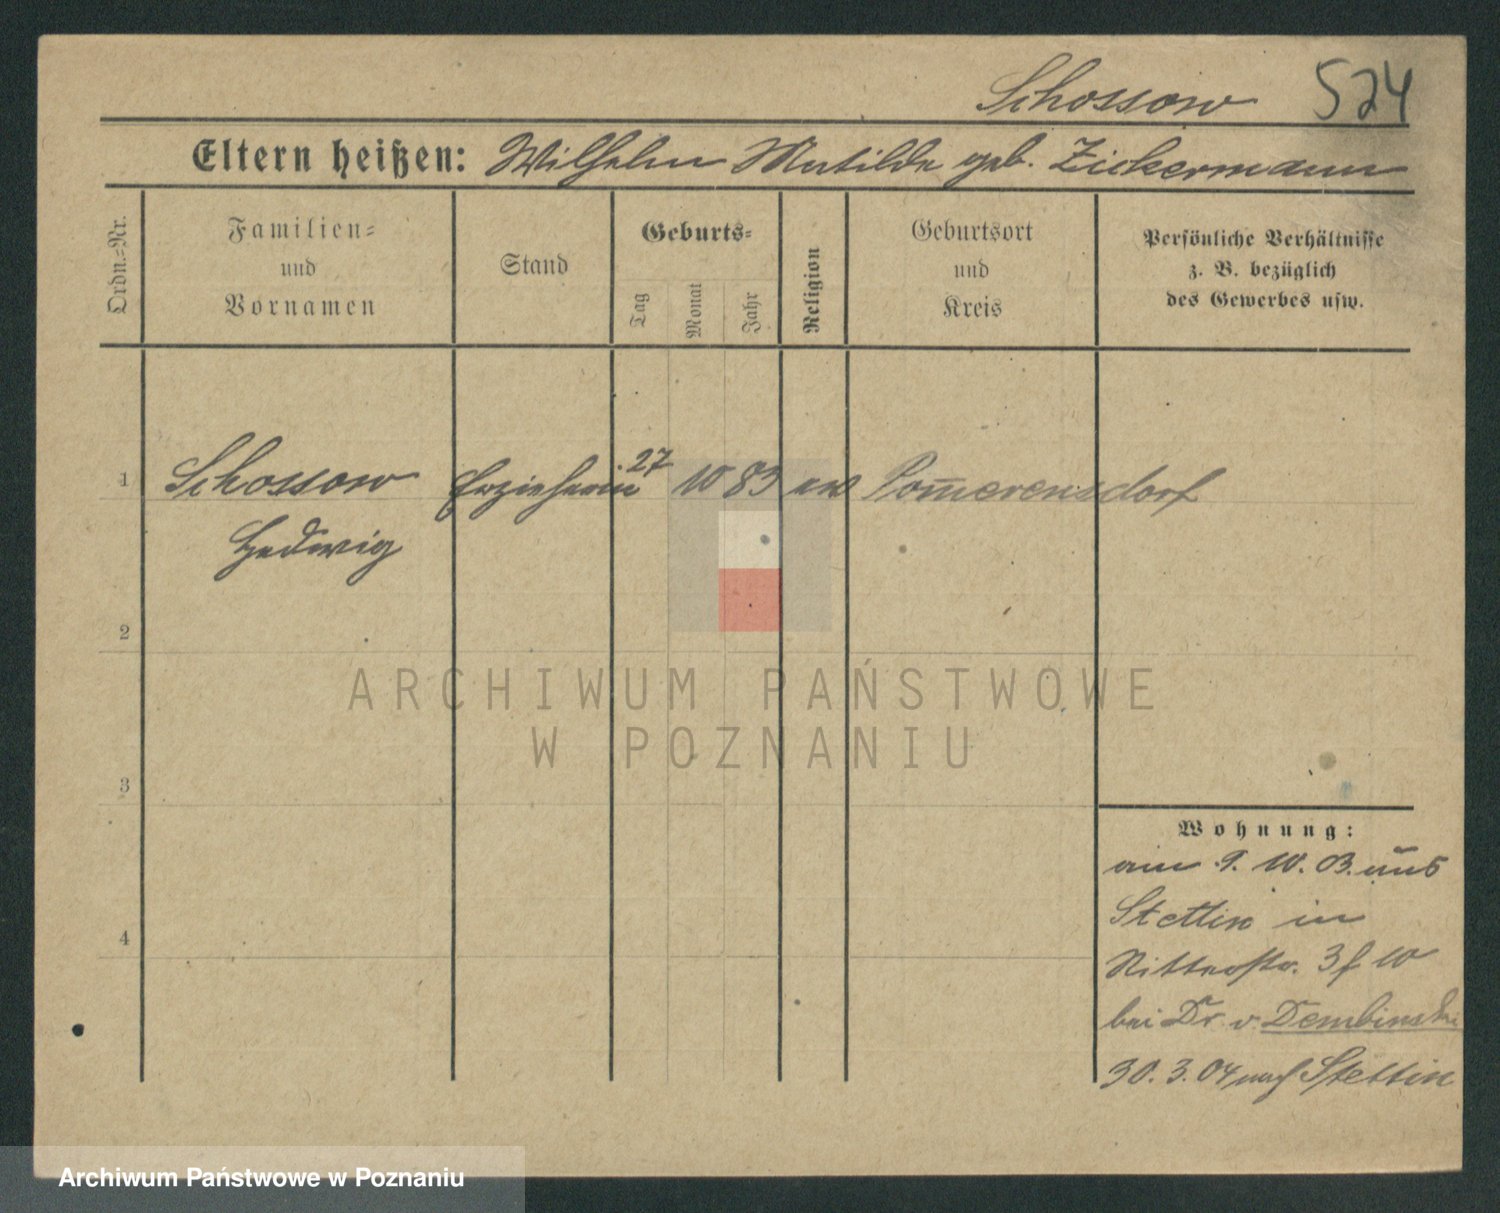 Schossow 524
Eltern heißen: Wilhelm Mathilde geb. Zickermann
Ordn.-Nr.
Familien-
und
Vornamen
Stand
Geburts-
Tag
Monat
Jahr
Religion
Geburtsort
und
Kreis
Persönliche Verhältnisse
z. B. bezüglich
des Gewerbes usw.
1 Schossow Erzieherin 27 10 83 ev Pom̅erensdorf
Hedwig
2
3
4
Wohnung:
am 9. 10. 03. aus
Stettin in
Ritterstr. 3
bei Dr v. Dembinski
30. 3. 04 nach Stettin
ARCHIWUM PAŃSTWOWE
W POZNANIU
Archiwum Państwowe w Poznaniu